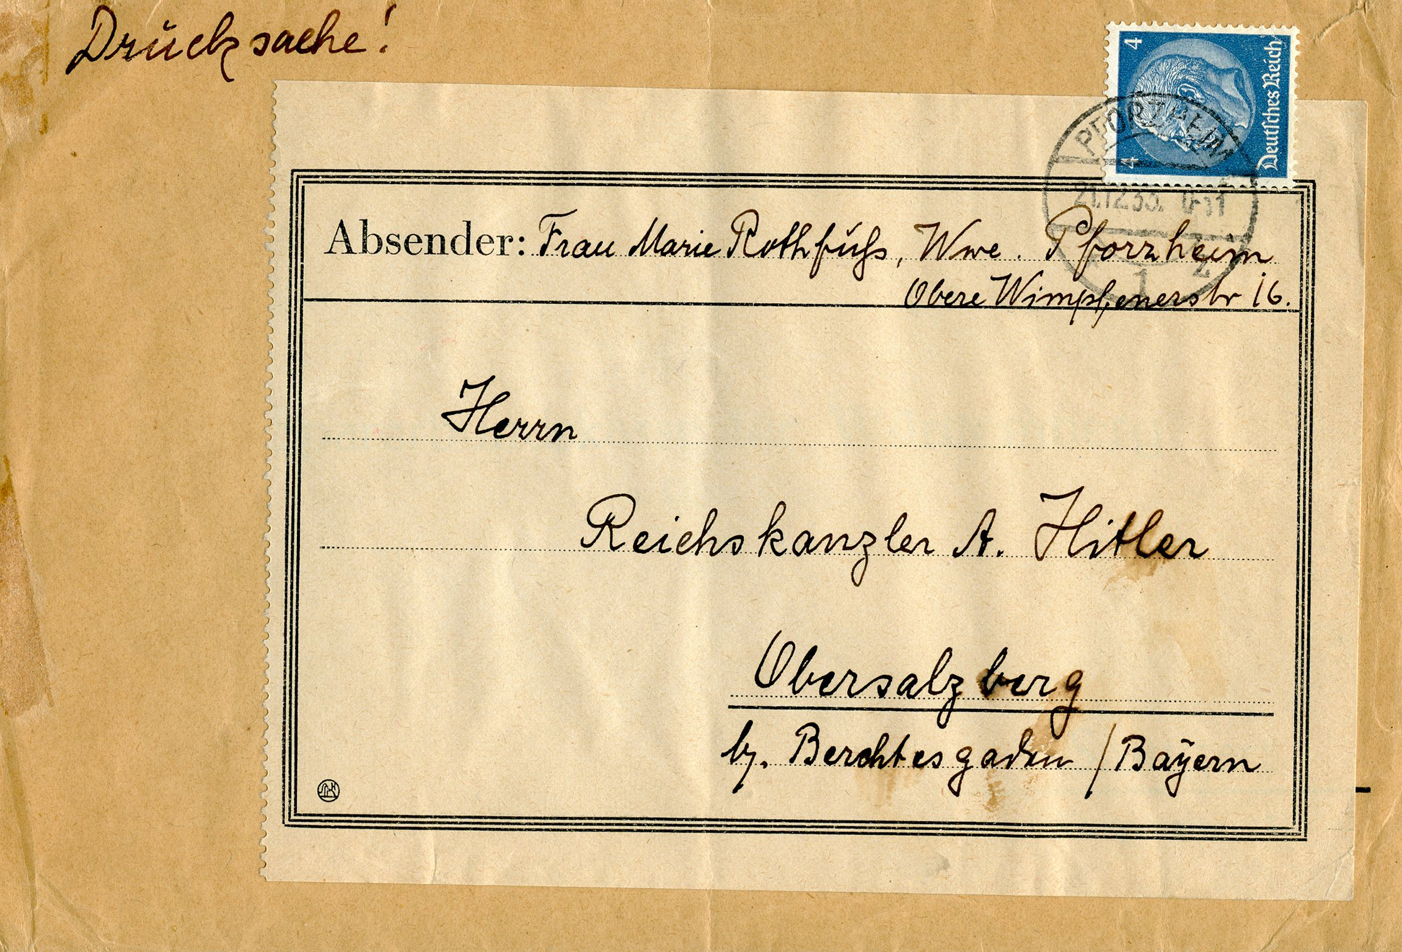 Drucksache!
4 4
Deutsches Reich
PFORZHEIM
21.12.33. 11
1 z
Absender: Frau Marie Rothfuß, Wwe. Pforzheim
Obere Wimpfenerstr 16.
Herrn
Reichskanzler A. Hitler
Obersalzberg
bz. Berchtesgaden / Bayern